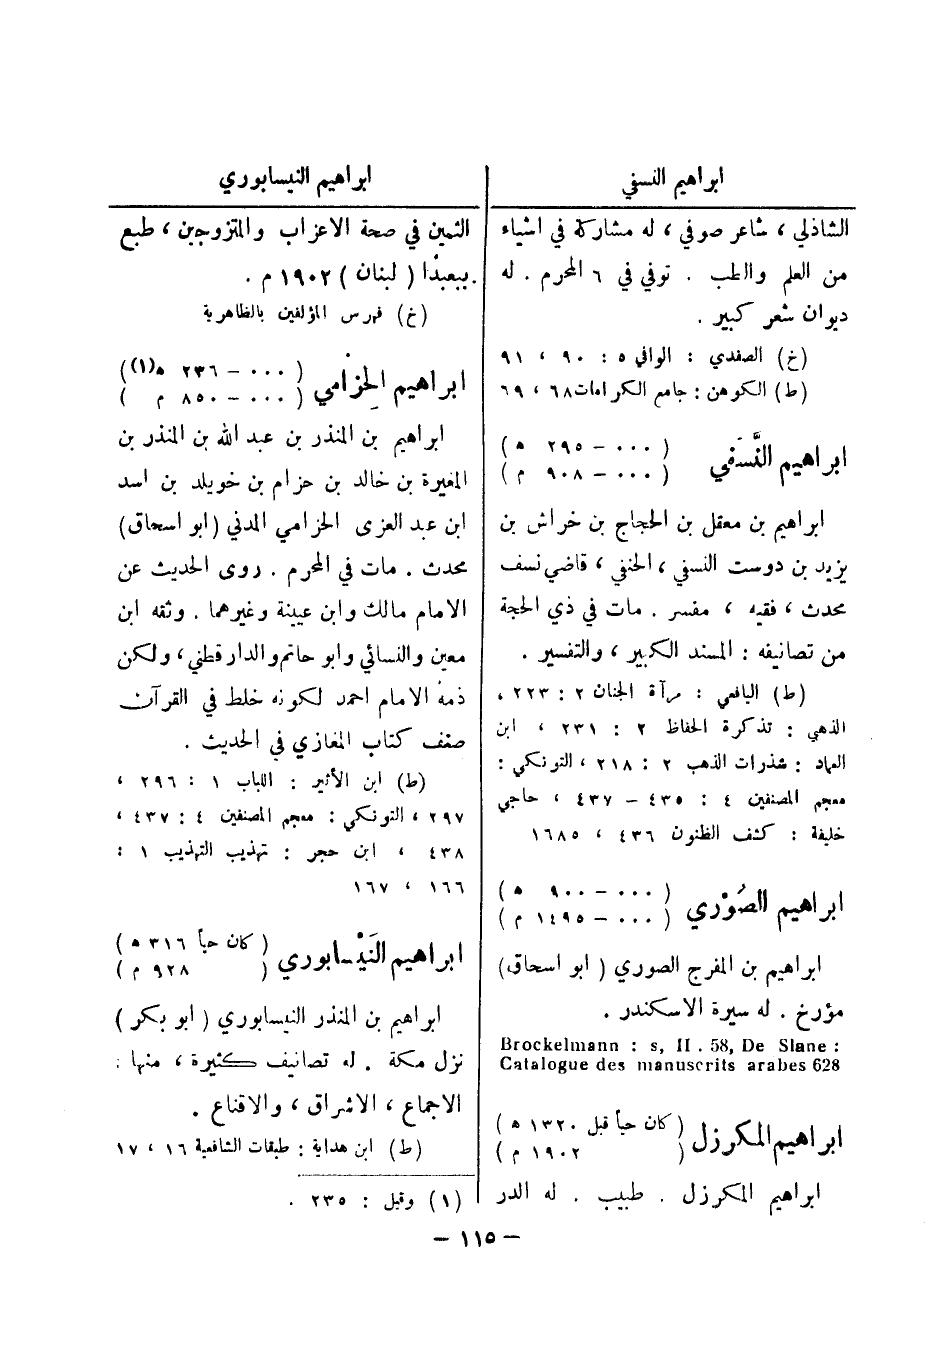 ابراهيم النسفي
الشاذلي ، شاعر صوفي ، له مشاركة في اشياء
من العلم والطب . توفي في ٦ المحرم . له
ديوان شعر كبير .
(خ) الصفدي : الوافي ٥ : ٩٠ ، ٩١
(ط) الكوهن : جامع الكرامات ٦٨ ، ٦٩
ابراهيم النَّسَفي (٠٠٠ – ٢٩٥ ه)
(٠٠٠ – ٩٠٨ م)
ابراهيم بن معقل بن الحجاج بن خراش بن
يزيد بن دوست النسفي ، الحنفي ، قاضي نسف
محدث ، فقيه ، مفسر . مات في ذي الحجة
من تصانيفه : المسند الكبير ، والتفسير .
(ط) اليافعي : مرآة الجنان ٢ : ٢٢٣ ،
الذهبي : تذكرة الحفاظ ٢ : ٢٣١ ، ابن
العماد : شذرات الذهب ٢ : ٢١٨ ، التونكي :
معجم المصنفين ٤ : ٤٣٥ – ٤٣٧ ، حاجي
خليفة : كشف الظنون ٤٣٦ ، ١٦٨٥
ابراهيم الصُوْري (٠٠٠ – ٩٠٠ ه)
(٠٠٠ – ١٤٩٥ م)
ابراهيم بن المفرج الصوري ( ابو اسحاق)
مؤرخ . له سيرة الاسكندر .
Brockelmann : s, II . 58, De Slane :
Catalogue des manuscrits arabes 628
ابراهيم المكرزل (كان حياً قبل ١٣٢٠ ه)
(١٩٠٢ م)
ابراهيم المكرزل . طبيب . له الدر
ابراهيم النيسابوري
الثمين في صحة الاعزاب والمتزوجين ، طبع
ببعبدا ( لبنان ) ١٩٠٢ م .
(خ) فهرس المؤلفين بالظاهرية
ابراهيم الحِزامي (٠٠٠ – ٢٣٦ ه(١))
(٠٠٠ – ٨٥٠ م)
ابراهيم بن المنذر بن عبد الله بن المنذر بن
المغيرة بن خالد بن حزام بن خويلد بن اسد
ابن عبد العزى الحزامي المدني (ابو اسحاق)
محدث . مات في المحرم . روى الحديث عن
الامام مالك وابن عيينة وغيرهما . وثقه ابن
معين والنسائي وابو حاتم والدارقطني ، ولكن
ذمه الامام احمد لكونه خلط في القرآن
صنف كتاب المغازي في الحديث .
(ط) ابن الأثير : اللباب ١ : ٢٩٦ ،
٢٩٧ ، التونكي : معجم المصنفين ٤ : ٤٣٧ ،
٤٣٨ ، ابن حجر : تهذيب التهذيب ١ :
١٦٦ ، ١٦٧
ابراهيم النَيْسابوري (كان حياً ٣١٦ ه)
(٩٢٨ م)
ابراهيم بن المنذر النيسابوري ( ابو بكر )
نزل مكة . له تصانيف كثيرة ، منها :
الاجماع ، الاشراق ، والاقناع .
(ط) ابن هداية : طبقات الشافعية ١٦ ، ١٧
(١) وقيل : ٢٣٥ .
– ١١٥ –